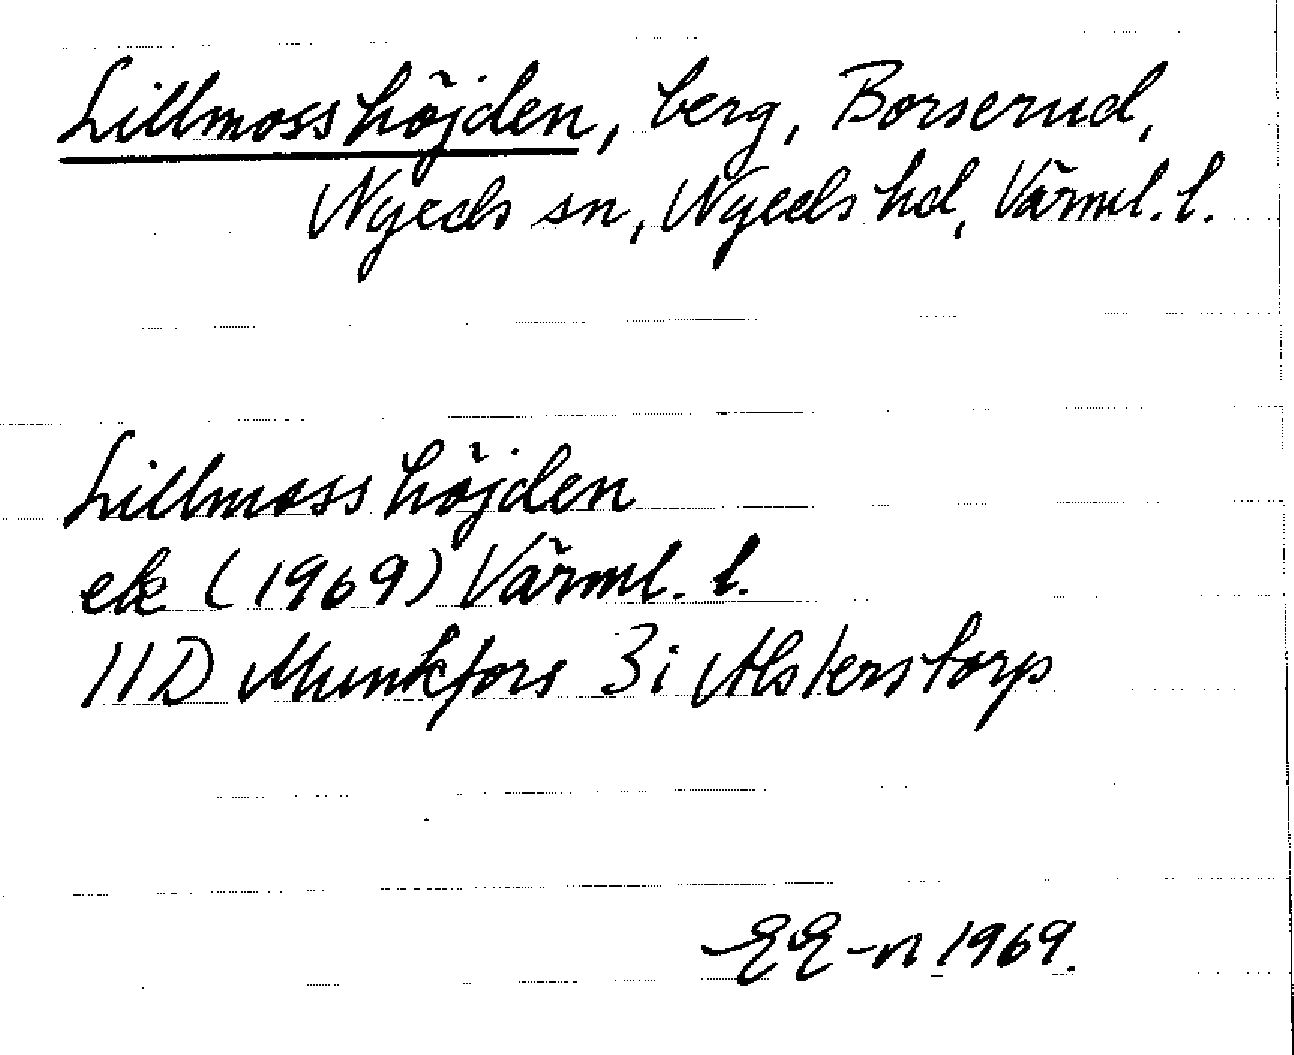 Lillmosshöjden, berg, Borserud,
Nyeds sn, Nyeds hd, Värml. l.
Lillmosshöjden
ek (1969) Värml. l.
11D Munkfors 3i Alsterstorp
EE-n 1969.